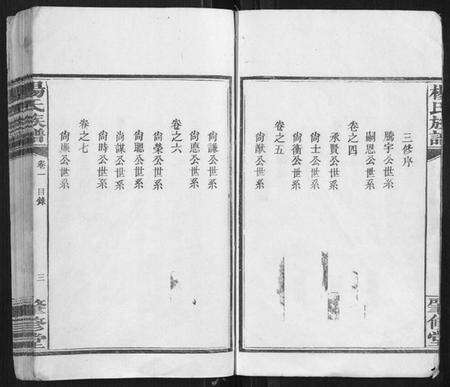 楊氏族譜
肇修堂
三修序
騰宇公世系
嗣恩公世系
卷之四
承賢公世系
尙士公世系
尙衡公世系
卷之五
尙猷公世系
尙謙公世系
尙應公世系
卷之六
尙榮公世系
尙聰公世系
尙謀公世系
尙時公世系
卷之七
尙廉公世系
楊氏族譜
卷一 目錄
三
肇修堂